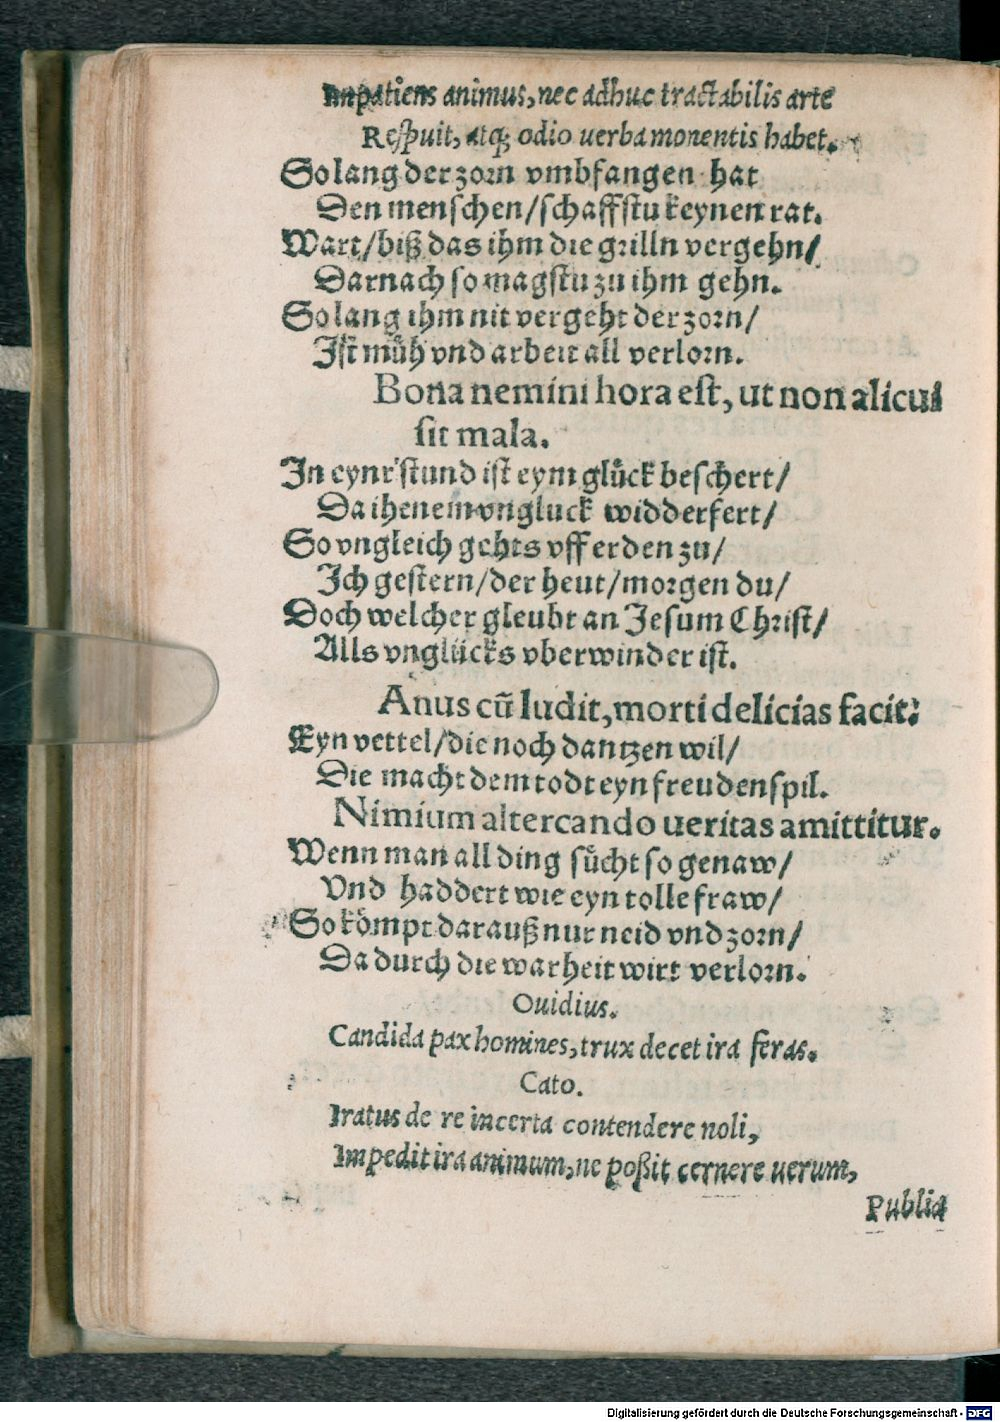 Impatiens animus, nec adhuc tractabilis arte
Respuit, atq; odio uerba monentis habet.
So lang der zorn vmbfangen hat
Den menschen/schaffstu keynen rat.
Wart/biß das ihm die grilln vergehn/
Darnach so magstu zu ihm gehn.
So lang ihm nit vergeht der zorn/
Ist muͤh vnd arbeit all verlorn.
Bona nemini hora est, ut non alicui
sit mala.
In eynr stund ist eym gluͤck beschert/
Da ihenem vngluck widderfert/
So vngleich gehts vff erden zu/
Ich gestern/der heut/morgen du/
Doch welcher gleubt an Jesum Christ/
Alls vnglücks vberwinder ist.
Anus cū ludit, morti delicias facit:
Eyn vettel/die noch dantzen wil/
Die macht dem todt eyn freudenspil.
Nimium altercando ueritas amittitur.
Wenn man all ding suͤcht so genaw/
Vnd haddert wie eyn tolle fraw/
So koͤmpt darauß nur neid vnd zorn/
Da durch die warheit wirt verlorn.
Ouidius.
Candida pax homines, trux decet ira feras.
Cato.
Iratus de re incerta contendere noli,
Impedit ira animum, ne poßit cernere uerum,
Publia
Digitalisierung gefördert durch die Deutsche Forschungsgemeinschaft - DFG